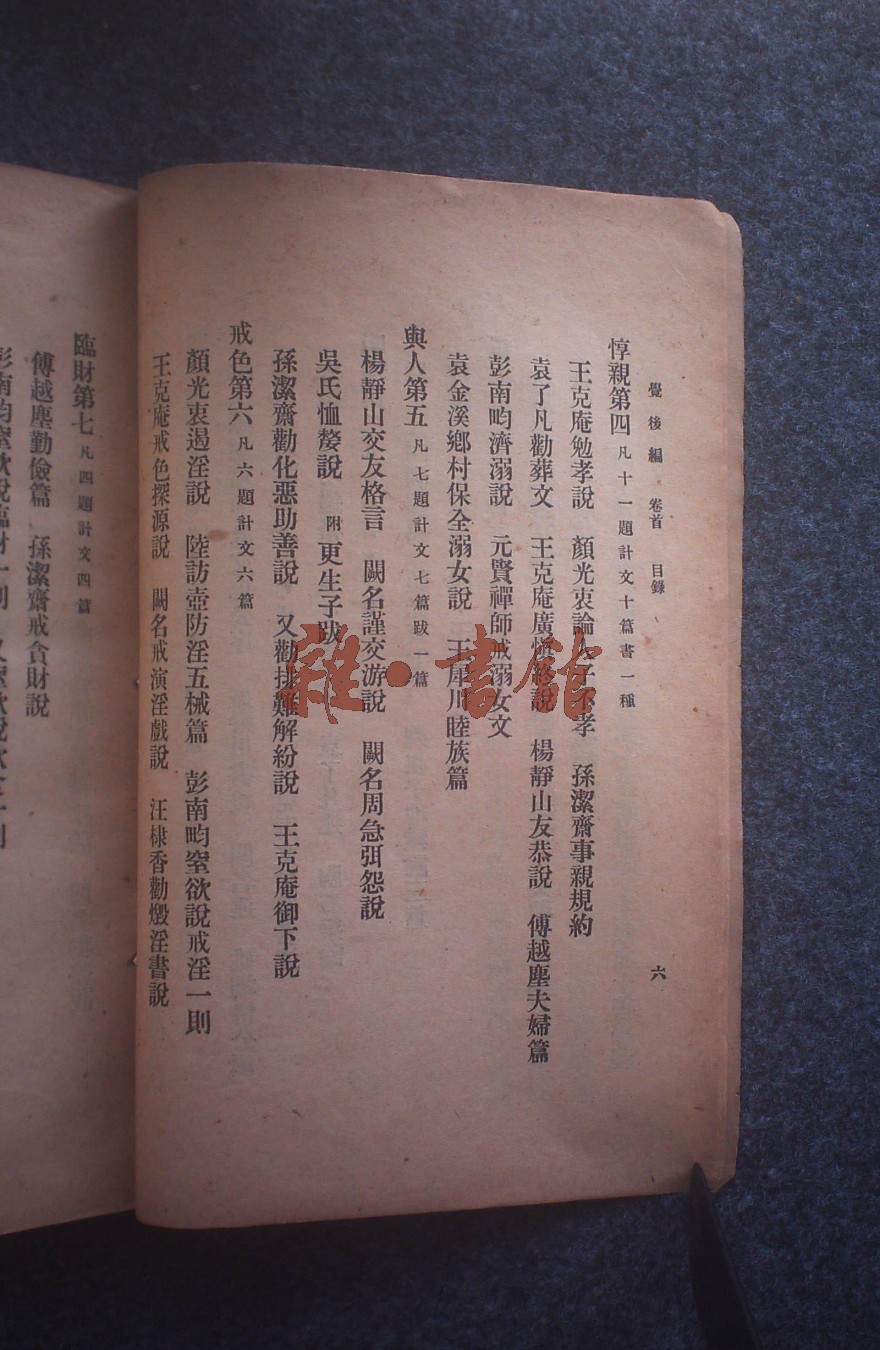 覺後編 卷首 目錄 六
惇親第四 凡十一題計文十篇書一種
王克庵勉孝說 顏光衷論人子不孝 孫潔齋事親規約
袁了凡勸葬文 王克庵廣慎終說 楊靜山友恭說 傅越塵夫婦篇
彭南畇濟溺說 元賢禪師戒溺女文
袁金溪鄉村保全溺女說 王犀川睦族篇
與人第五 凡七題計文七篇跋一篇
楊靜山交友格言 闕名謹交游說 闕名周急弭怨說
吳氏恤嫠說 附更生子跋
孫潔齋勸化惡助善說 又勸排難解紛說 王克庵御下說
戒色第六 凡六題計文六篇
顏光衷遏淫說 陸訪壺防淫五械篇 彭南畇窒欲說戒淫一則
王克庵戒色探源說 闕名戒演淫戲說 汪棣香勸燬淫書說
臨財第七 凡四題計文四篇
傅越塵勤儉篇 孫潔齋戒貪財說
彭南畇窒欲說臨財一則
雜·書館